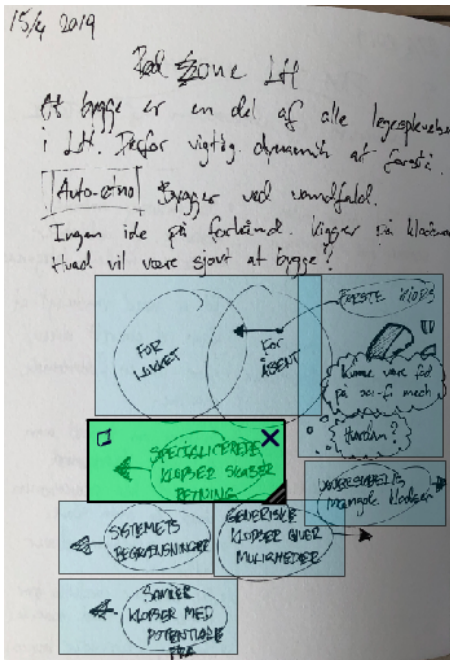 15/4 2019
Red Zone LH
At bygge er en del af alle legeoplevelser
i LH. Derfor vigtig dynamik at forstå.
Auto-etno Bygger ved vandfald.
Ingen ide på forhånd. Kigger på klodserne
Hvad vil være sjovt at bygge?
FØRSTE KLODS
FOR LUKKET
FOR ÅBENT
Kunne være fed
på sci-fi mech
Hvordan?
SPECIALICEREDE
KLODSER SKABER
RETNING
mangle klodser
SYSTEMETS
BEGRÆNSNINGER
GENERISKE
KLODSER GIVER
MULIGHEDER
SAMLER
KLODSER MED
POTENTIALE
FRA